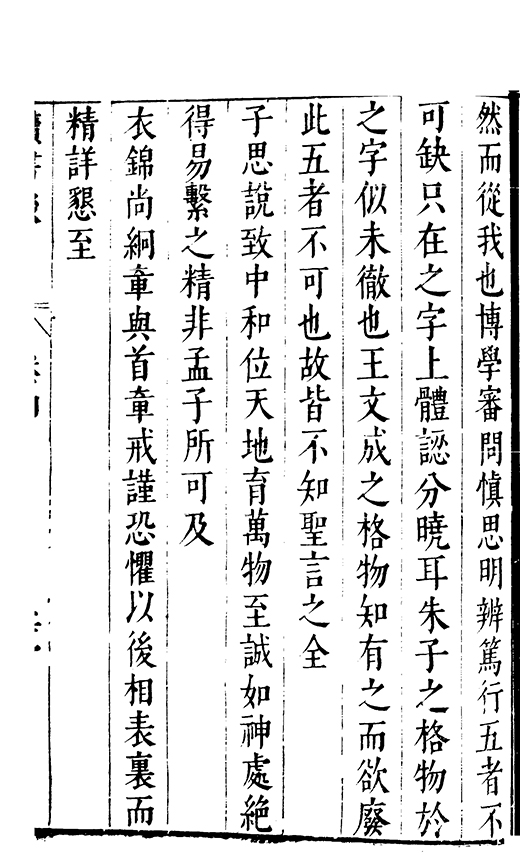 然而從我也博學審問慎思明辨篤行五者不
可缺只在之字上體認分曉耳朱子之格物於
之字似未徹也王文成之格物知有之而欲廢
此五者不可也故皆不知聖言之全
子思說致中和位天地育萬物至誠如神處絶
得易繫之精非孟子所可及
衣錦尚絅章與首章戒謹恐懼以後相表裏而
精詳懇至